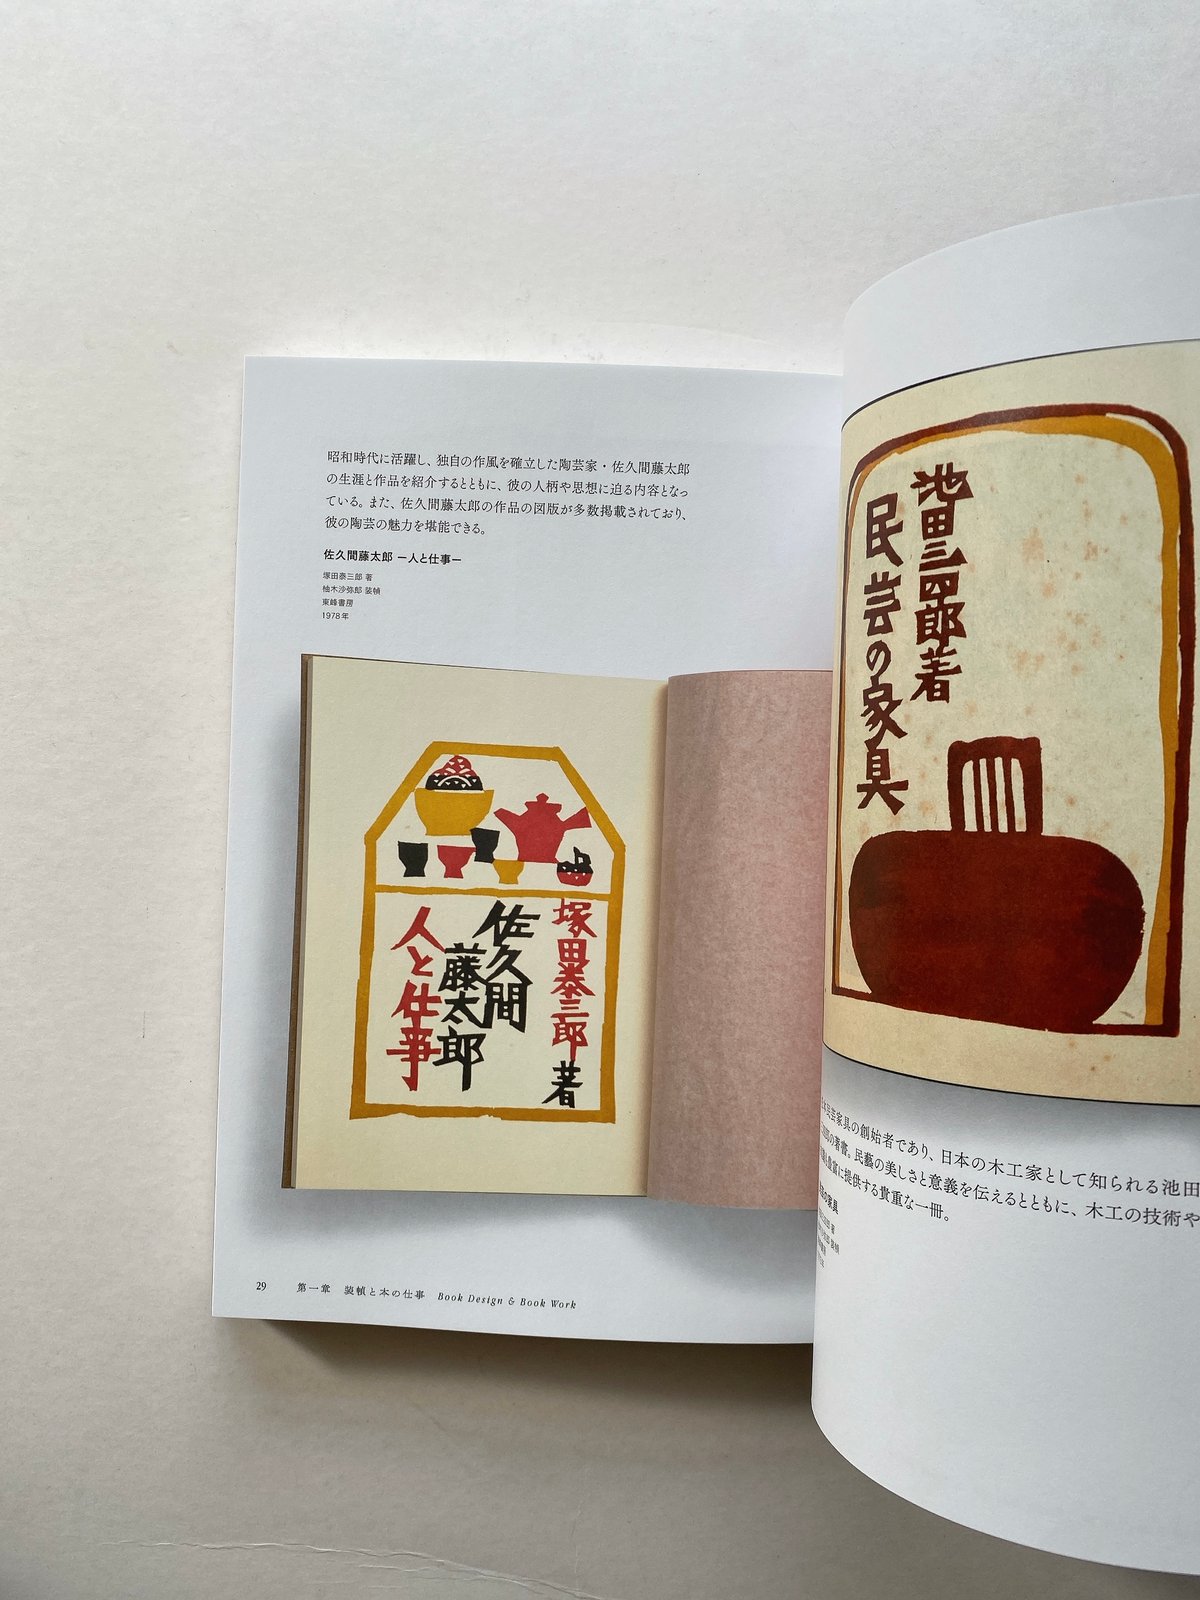 昭和時代に活躍し、独自の作風を確立した陶芸家・佐久間藤太郎
の生涯と作品を紹介するとともに、彼の人柄や思想に迫る内容となっ
ている。また、佐久間藤太郎の作品の図版が多数掲載されており、
彼の陶芸の魅力を堪能できる。
佐久間藤太郎 ー人と仕事ー
塚田泰三郎 著
柚木沙弥郎 装幀
東峰書房
1978年
塚田泰三郎 著
佐久間
藤太郎
人と仕事
29 第一章 装幀と本の仕事 Book Design & Book Work
池田三四郎著
民芸の家具
民芸家具の創始者であり、日本の木工家として知られる池田
の著書。民藝の美しさと意義を伝えるとともに、木工の技術や
豊富に提供する貴重な一冊。
の家具
著
装幀